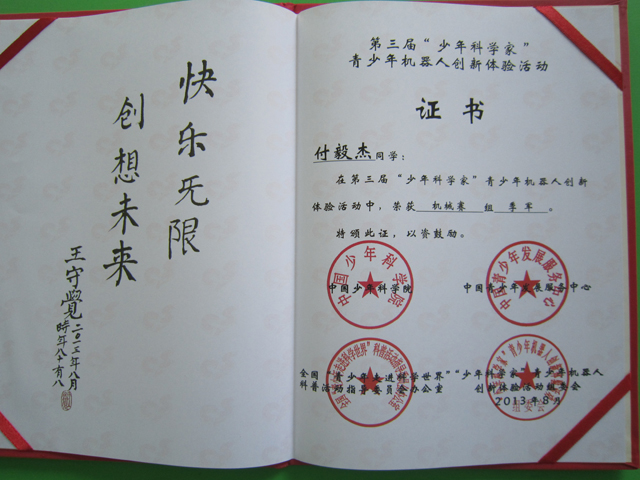 快乐无限
创想未来
王守觉
二〇一三年八月
时年八十有八
第三届“少年科学家”
青少年机器人创新体验活动
证书
付毅杰同学：
在第三届“少年科学家”青少年机器人创新
体验活动中，荣获 机械赛 组 季军 。
特颁此证，以资鼓励。
中国少年科学院
中国青少年发展服务中心
中国少年科学院
中国青少年发展服务中心
全国“青少年走进科学世界”
科普活动指导委员会办公室
“少年科学家”青少年机器人
创新体验活动组委会
2013年8月